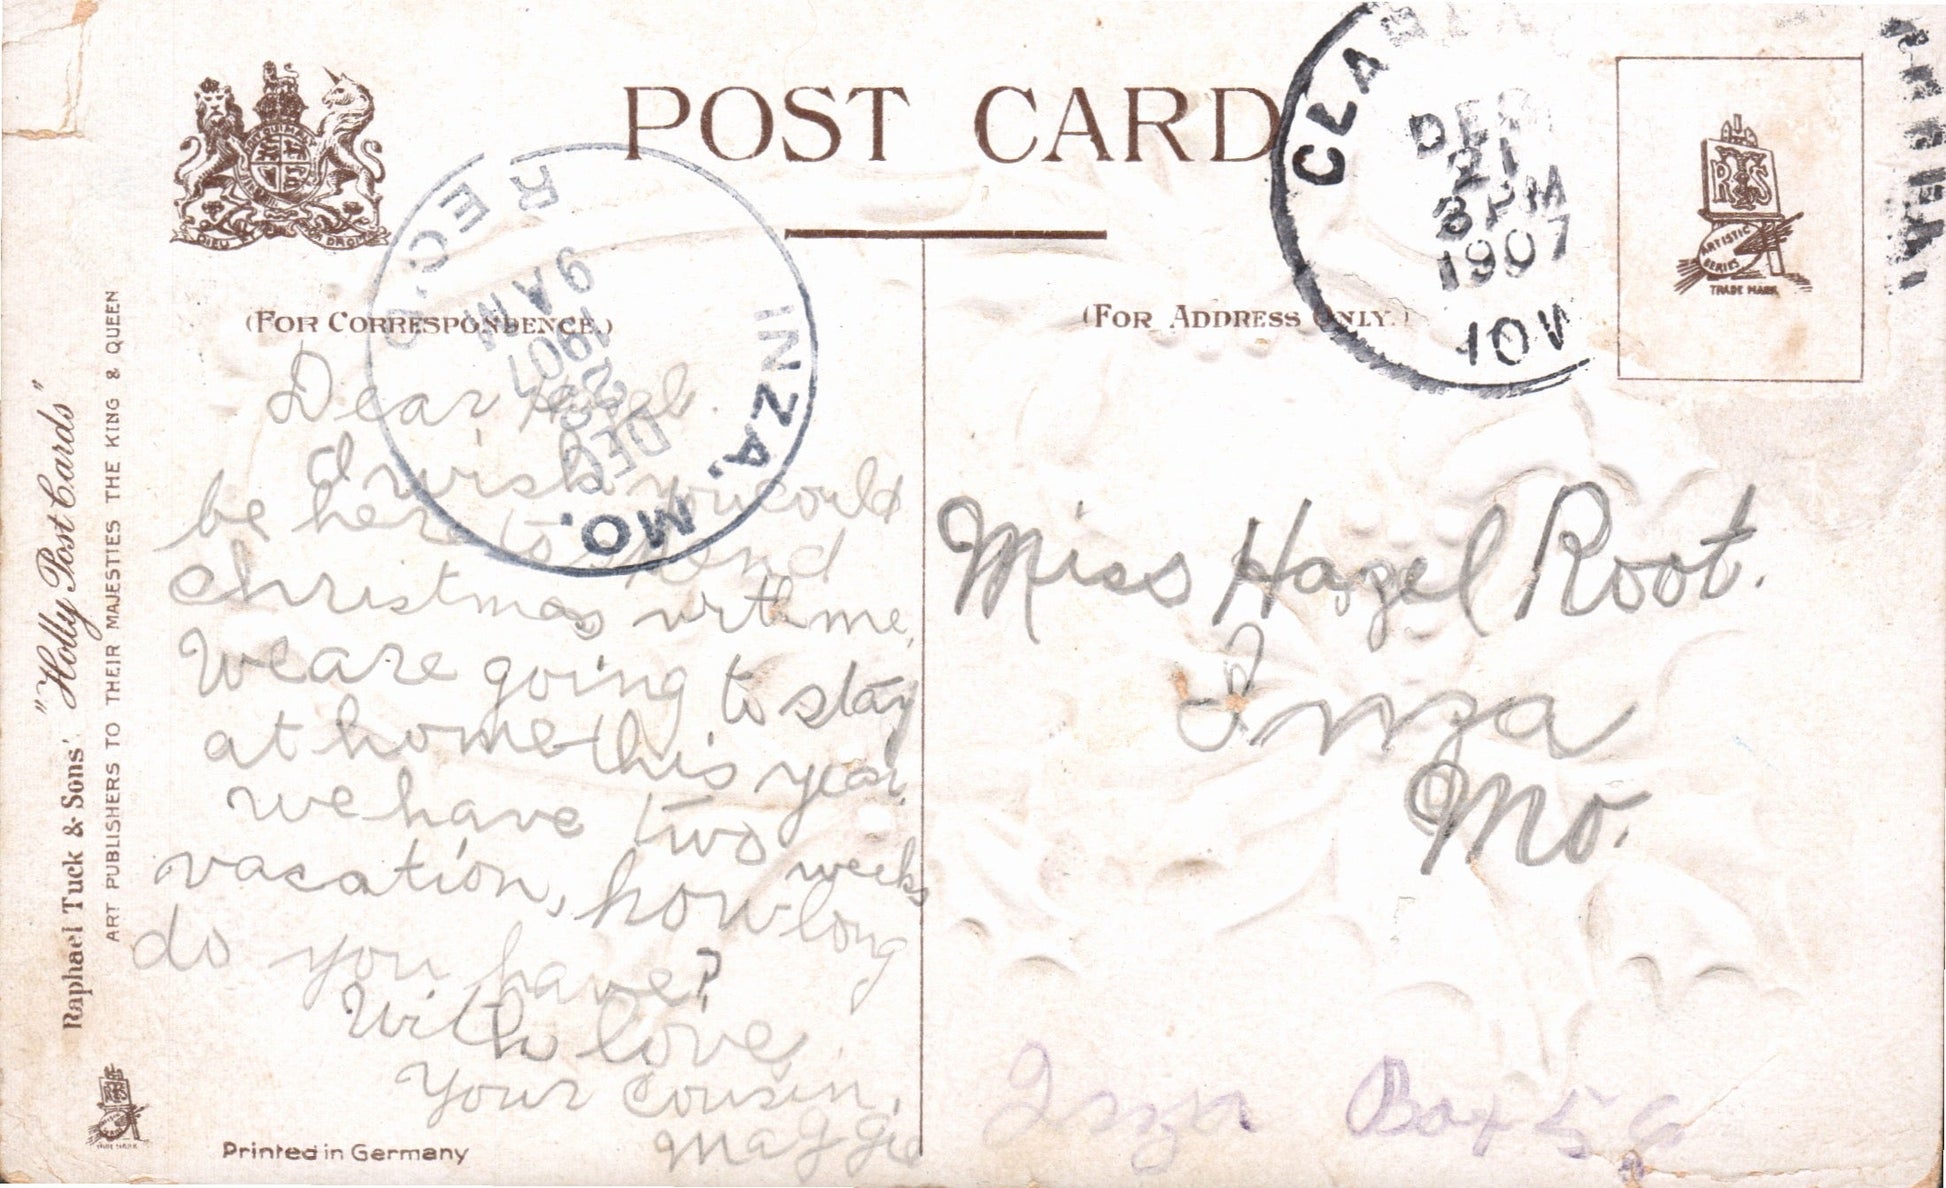 POST CARD
(FOR CORRESPONDENCE.)
(FOR ADDRESS ONLY.)
DIEU ET MON DROIT
RTS
ARTISTIC
SERIES
TRADE MARK
CLA
DEC
21
3 PM
1907
IOW
REC'D
9 AM
1907
23
DEC
INZA, MO.
Dear Hazel.
I wish you could
be here to spend
christmas with me,
We are going to stay
at home this year.
we have two weeks
vacation, how long
do you have?
With love
Your cousin,
Maggie
Miss Hazel Root.
Inza
Mo.
Inza Box
Raphael Tuck & Sons' "Holly Post Cards"
ART PUBLISHERS TO THEIR MAJESTIES THE KING & QUEEN
Printed in Germany